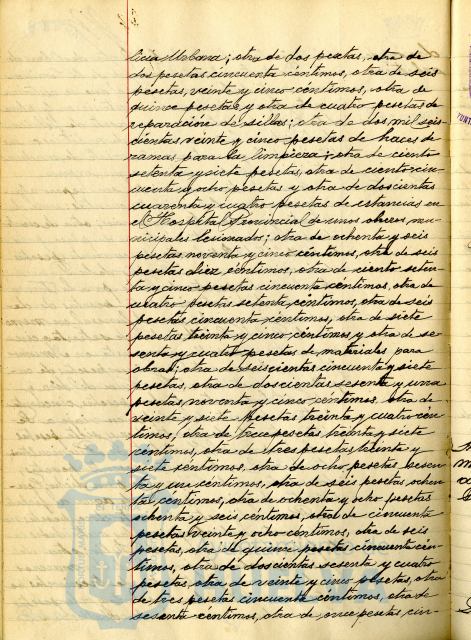 licia Urbana; otra de dos pesetas, otra de
dos pesetas cincuenta céntimos, otra de seis
pesetas, veinte y cinco céntimos, otra de
quince pesetas y otra de cuatro pesetas de
reparación de sillas; otra de dos mil seis-
cientas veinte y cinco pesetas de haces de
ramas para la limpieza; otra de ciento
setenta y siete pesetas, otra de ciento cin-
cuenta y ocho pesetas y otra de doscientas
cuarenta y cuatro pesetas de estancias en
el Hospital Provincial de unos obreros mu-
nicipales lesionados; otra de ochenta y seis
pesetas noventa y cinco céntimos, otra de seis
pesetas diez céntimos, otra de ciento seten-
ta y cinco pesetas cincuenta céntimos, otra de
cuatro pesetas setenta céntimos, otra de seis
pesetas cincuenta céntimos, otra de siete
pesetas treinta y cinco céntimos y otra de se-
senta y cuatro pesetas de materiales para
obras; otra de seiscientas cincuenta y siete
pesetas, otra de doscientas sesenta y una
pesetas, noventa y cinco céntimos, otra de
veinte y siete pesetas treinta y cuatro cén-
timos, otra de trece pesetas, treinta y siete
céntimos, otra de tres pesetas treinta y
siete céntimos, otra de ocho pesetas sesen-
ta y un céntimos, otra de seis pesetas ochen-
ta céntimos, otra de ochenta y ocho pesetas
ochenta y seis céntimos, otra de cincuenta
pesetas veinte y ocho céntimos, otra de seis
pesetas, otra de quince pesetas cincuenta cén-
timos, otra de doscientas sesenta y cuatro
pesetas, otra de veinte y cinco pesetas, otra
de tres pesetas cincuenta céntimos, otra de
sesenta céntimos, otra de once pesetas, cin-